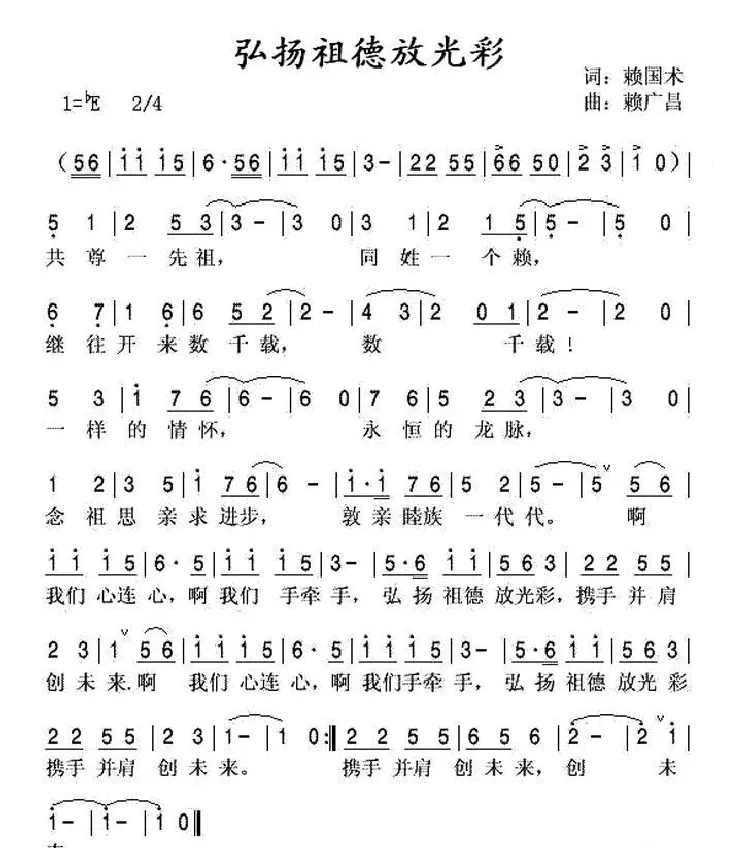 弘扬祖德放光彩
词：赖国术
1=♭E 2/4
曲：赖广昌
（56 | i i i 5 | 6·56 | i i i 5 | 3 - | 22 55 | 66 50 | 2 3 | i 0）|
5 1 | 2 5 3 | 3 - | 3 0 | 3 1 | 2 1 5 | 5 - | 5 0 |
共尊一先祖， 同姓一个赖，
6 7 | 1 6 | 6 5 2 | 2 - | 4 3 | 2 0 1 | 2 - | 2 0 |
继往开来数千载， 数 千载！
5 3 | i 7 6 | 6 - | 6 0 | 7 6 | 5 2 3 | 3 - | 3 0 |
一样的情怀， 永恒的龙脉，
1 2 | 3 5 | i 7 6 | 6 - | i·i | 7 6 5 | 5 2 | 5 - | 5 ∨ 5 6 |
念祖思亲求进步， 敦亲睦族一代代。 啊
i i i 5 | 6·5 | i i i 5 | 3 - | 5·6 i i | 5 6 3 | 2 2 5 5 |
我们心连心，啊我们手牵手，弘扬祖德放光彩，携手并肩
2 3 | i ∨ 5 6 | i i i 5 | 6·5 | i i i 5 | 3 - | 5·6 i i | 5 6 3 |
创未来.啊 我们心连心，啊我们手牵手，弘扬祖德放光彩
2 2 5 5 | 2 3 | 1 - | 1 0 :‖ 2 2 5 5 | 6 5 6 | 2 - | 2 ∨ i |
携手并肩创未来。 携手并肩创未来，创 未
i - | i - | i 0 ‖